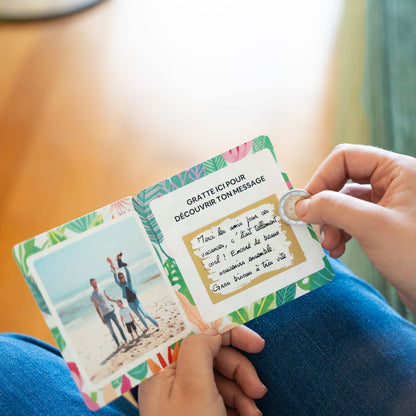 GRATTE ICI POUR
DÉCOUVRIR TON MESSAGE
Merci les amis pour ces
vacances, c'était tellement
cool ! Encore de beaux
souvenirs ensemble.
Gros bisous à très vite